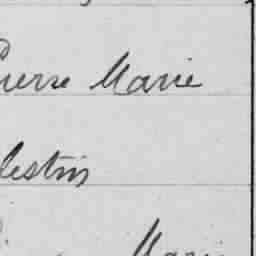 Pierre Marie
lestin
Marie